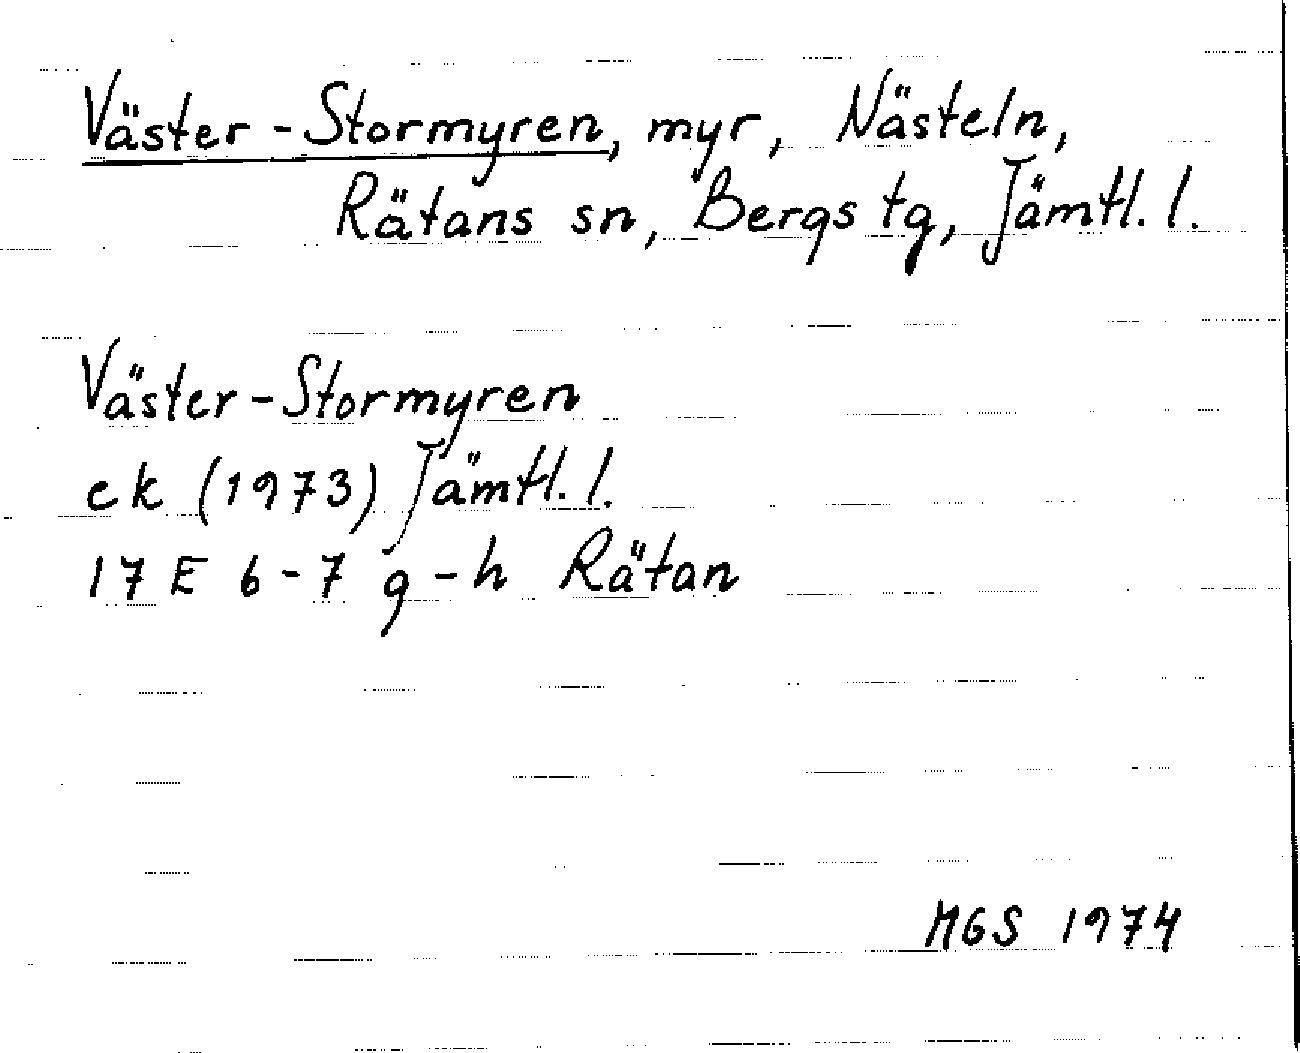 Väster-Stormyren, myr, Nästeln,
Rätans sn, Bergs tg, Jämtl. l.
Väster-Stormyren
ek (1973) Jämtl. l.
17 E 6-7 g-h Rätan
MGS 1974